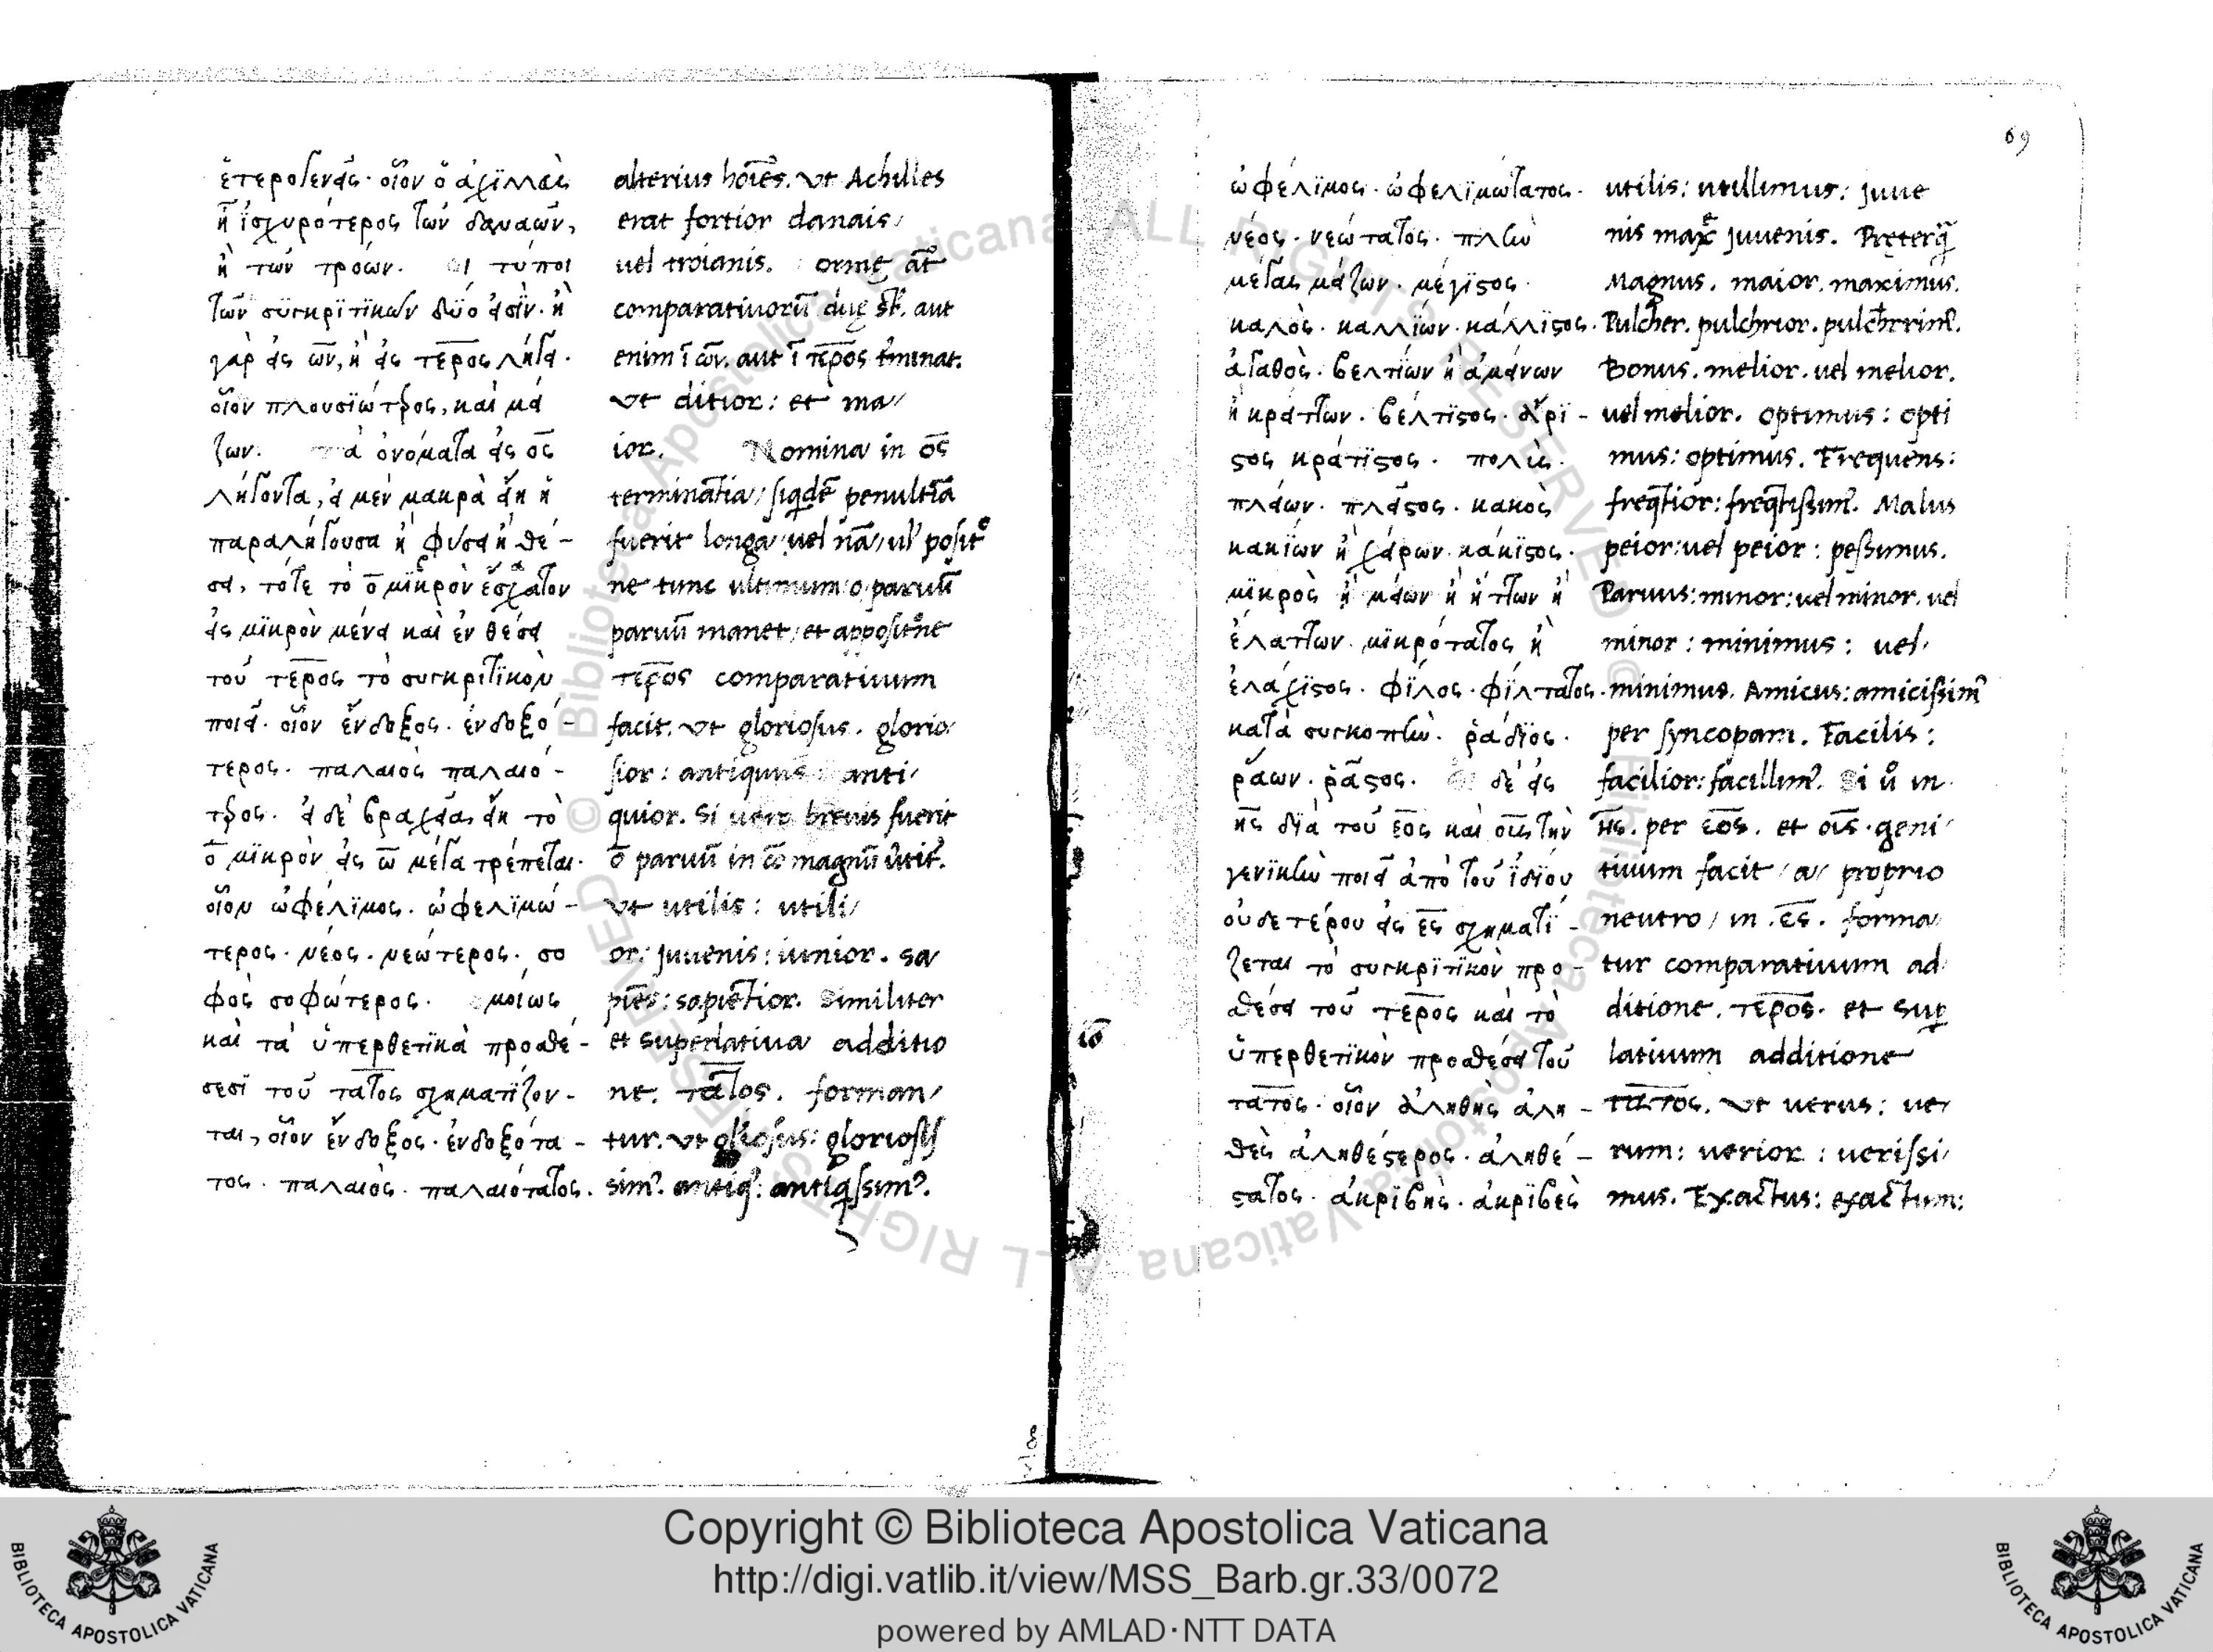 ἑτερογενεῖς· οἷον ὁ ἀχιλλεὺς
ἦν ἰσχυρότερος τῶν δαναῶν,
ἢ τῶν τρώων. οἱ τύποι
τῶν συγκριτικῶν δύο εἰσὶν· ἢ
γὰρ εἰς ων, ἢ εἰς τερος λήγει·
οἷον πλουσιώτερος, καὶ μεί
ζων. τὰ ὀνόματα εἰς ος
λήγοντα, εἰ μὲν μακρὰ εἴη ἡ
παραλήγουσα ἢ φύσει ἢ θέ-
σει, τότε τὸ ο μικρὸν ἔσχατον
εἰς μικρὸν μένει καὶ ἐν θέσει
τοῦ τερος τὸ συγκριτικὸν
ποιεῖ· οἷον ἔνδοξος· ἐνδοξό-
τερος· παλαιὸς παλαιό-
τερος· εἰ δὲ βραχεῖα εἴη τὸ
ο μικρὸν εἰς ω μέγα τρέπεται·
οἷον ὠφέλιμος· ὠφελιμώ-
τερος· νέος· νεώτερος· σο
φὸς σοφώτερος· ὁμοίως
καὶ τὰ ὑπερθετικὰ προσθέ-
σεσι τοῦ τατος σχηματίζον-
ται, οἷον ἔνδοξος· ἐνδοξότα-
τος· παλαιὸς· παλαιότατος.
alterius hoīes. ut Achilles
erat fortior danais,
uel troianis. orme āt
comparatiuorū due st̄. aut
enim ī ων. aut ī τερος t̄minat.
ut ditior: et ma
ior. Nomina in ος
terminātia, siqdē penultīa
fuerit longa uel nā, ul' posit
ne tunc ultimum o paruū
paruū manet, et appositne
τερος comparatiuum
facit. ut gloriosus. glorio
sior: antiquus: anti
quior. Si uero breuis fuerit
ο paruū in ω magnū ūtit.
ut utilis: utili
or: juuenis: iunior. sa
piēs: sapiētior. Similiter
et superlatiua additio
ne. τατος. forman
tur. ut gliosus: gloriosis
sim9. antiq9: antiqssim9.
69
ὠφέλιμος· ὠφελιμώτατος·
νέος· νεώτατος· πλὴν
μέγας μείζων· μέγιστος·
καλὸς· καλλίων· κάλλιστος·
ἀγαθὸς· βελτίων ἢ ἀμείνων
ἢ κρείττων· βέλτιστος· ἄρι-
στος κράτιστος· πολὺς·
πλείων· πλεῖστος· κακὸς
κακίων ἢ χείρων· κάκιστος·
μικρὸς ἢ μείων ἢ ἥττων ἢ
ἐλάττων· μικρότατος ἢ
ἐλάχιστος· φίλος· φίλτατος·
κατὰ συγκοπὴν· ῥάδιος·
ῥάων· ῥᾷστος· δὲ εἰς
ης διὰ τοῦ εος καὶ ους τὴν
γενικὴν ποιεῖ ἀπὸ τοῦ ἰδίου
οὐδετέρου εἰς ες σχηματί-
ζεται τὸ συγκριτικὸν προ-
θέσει τοῦ τερος καὶ τὸ
ὑπερθετικὸν προσθέσει τοῦ
τατος· οἷον ἀληθὴς ἀλη-
θὲς ἀληθέστερος· ἀληθέ-
στατος· ἀκριβὴς· ἀκριβὲς
utilis: utilimus: juue
nis maxe juuenis. Pręterq̄
Magnus. maior. maximus.
Pulcher. pulchrior. pulcherrim9.
Bonus. melior. uel melior.
uel melior. optimus: opti
mus: optimus. Frequens:
freq̄tior: freq̄tissim9. Malus
peior: uel peior: pessimus.
Paruus: minor: uel minor. uel
minor: minimus: uel
minimus. Amicus: amicissim9
per syncopam. Facilis:
facilior: facillim9. Si ů in
ης. per εος. et οις. geni
tiuum facit, a proprio
neutro, in .ες. forma
tur comparatiuum ad
ditione. τερος. et sup
latiuum additione
τατος. ut uerus: ue
rum: uerior: uerissi
mus. Exactus: exactum:
Copyright © Biblioteca Apostolica Vaticana
http://digi.vatlib.it/view/MSS_Barb.gr.33/0072
powered by AMLAD·NTT DATA
BIBLIOTECA APOSTOLICA VATICANA
BIBLIOTECA APOSTOLICA VATICANA